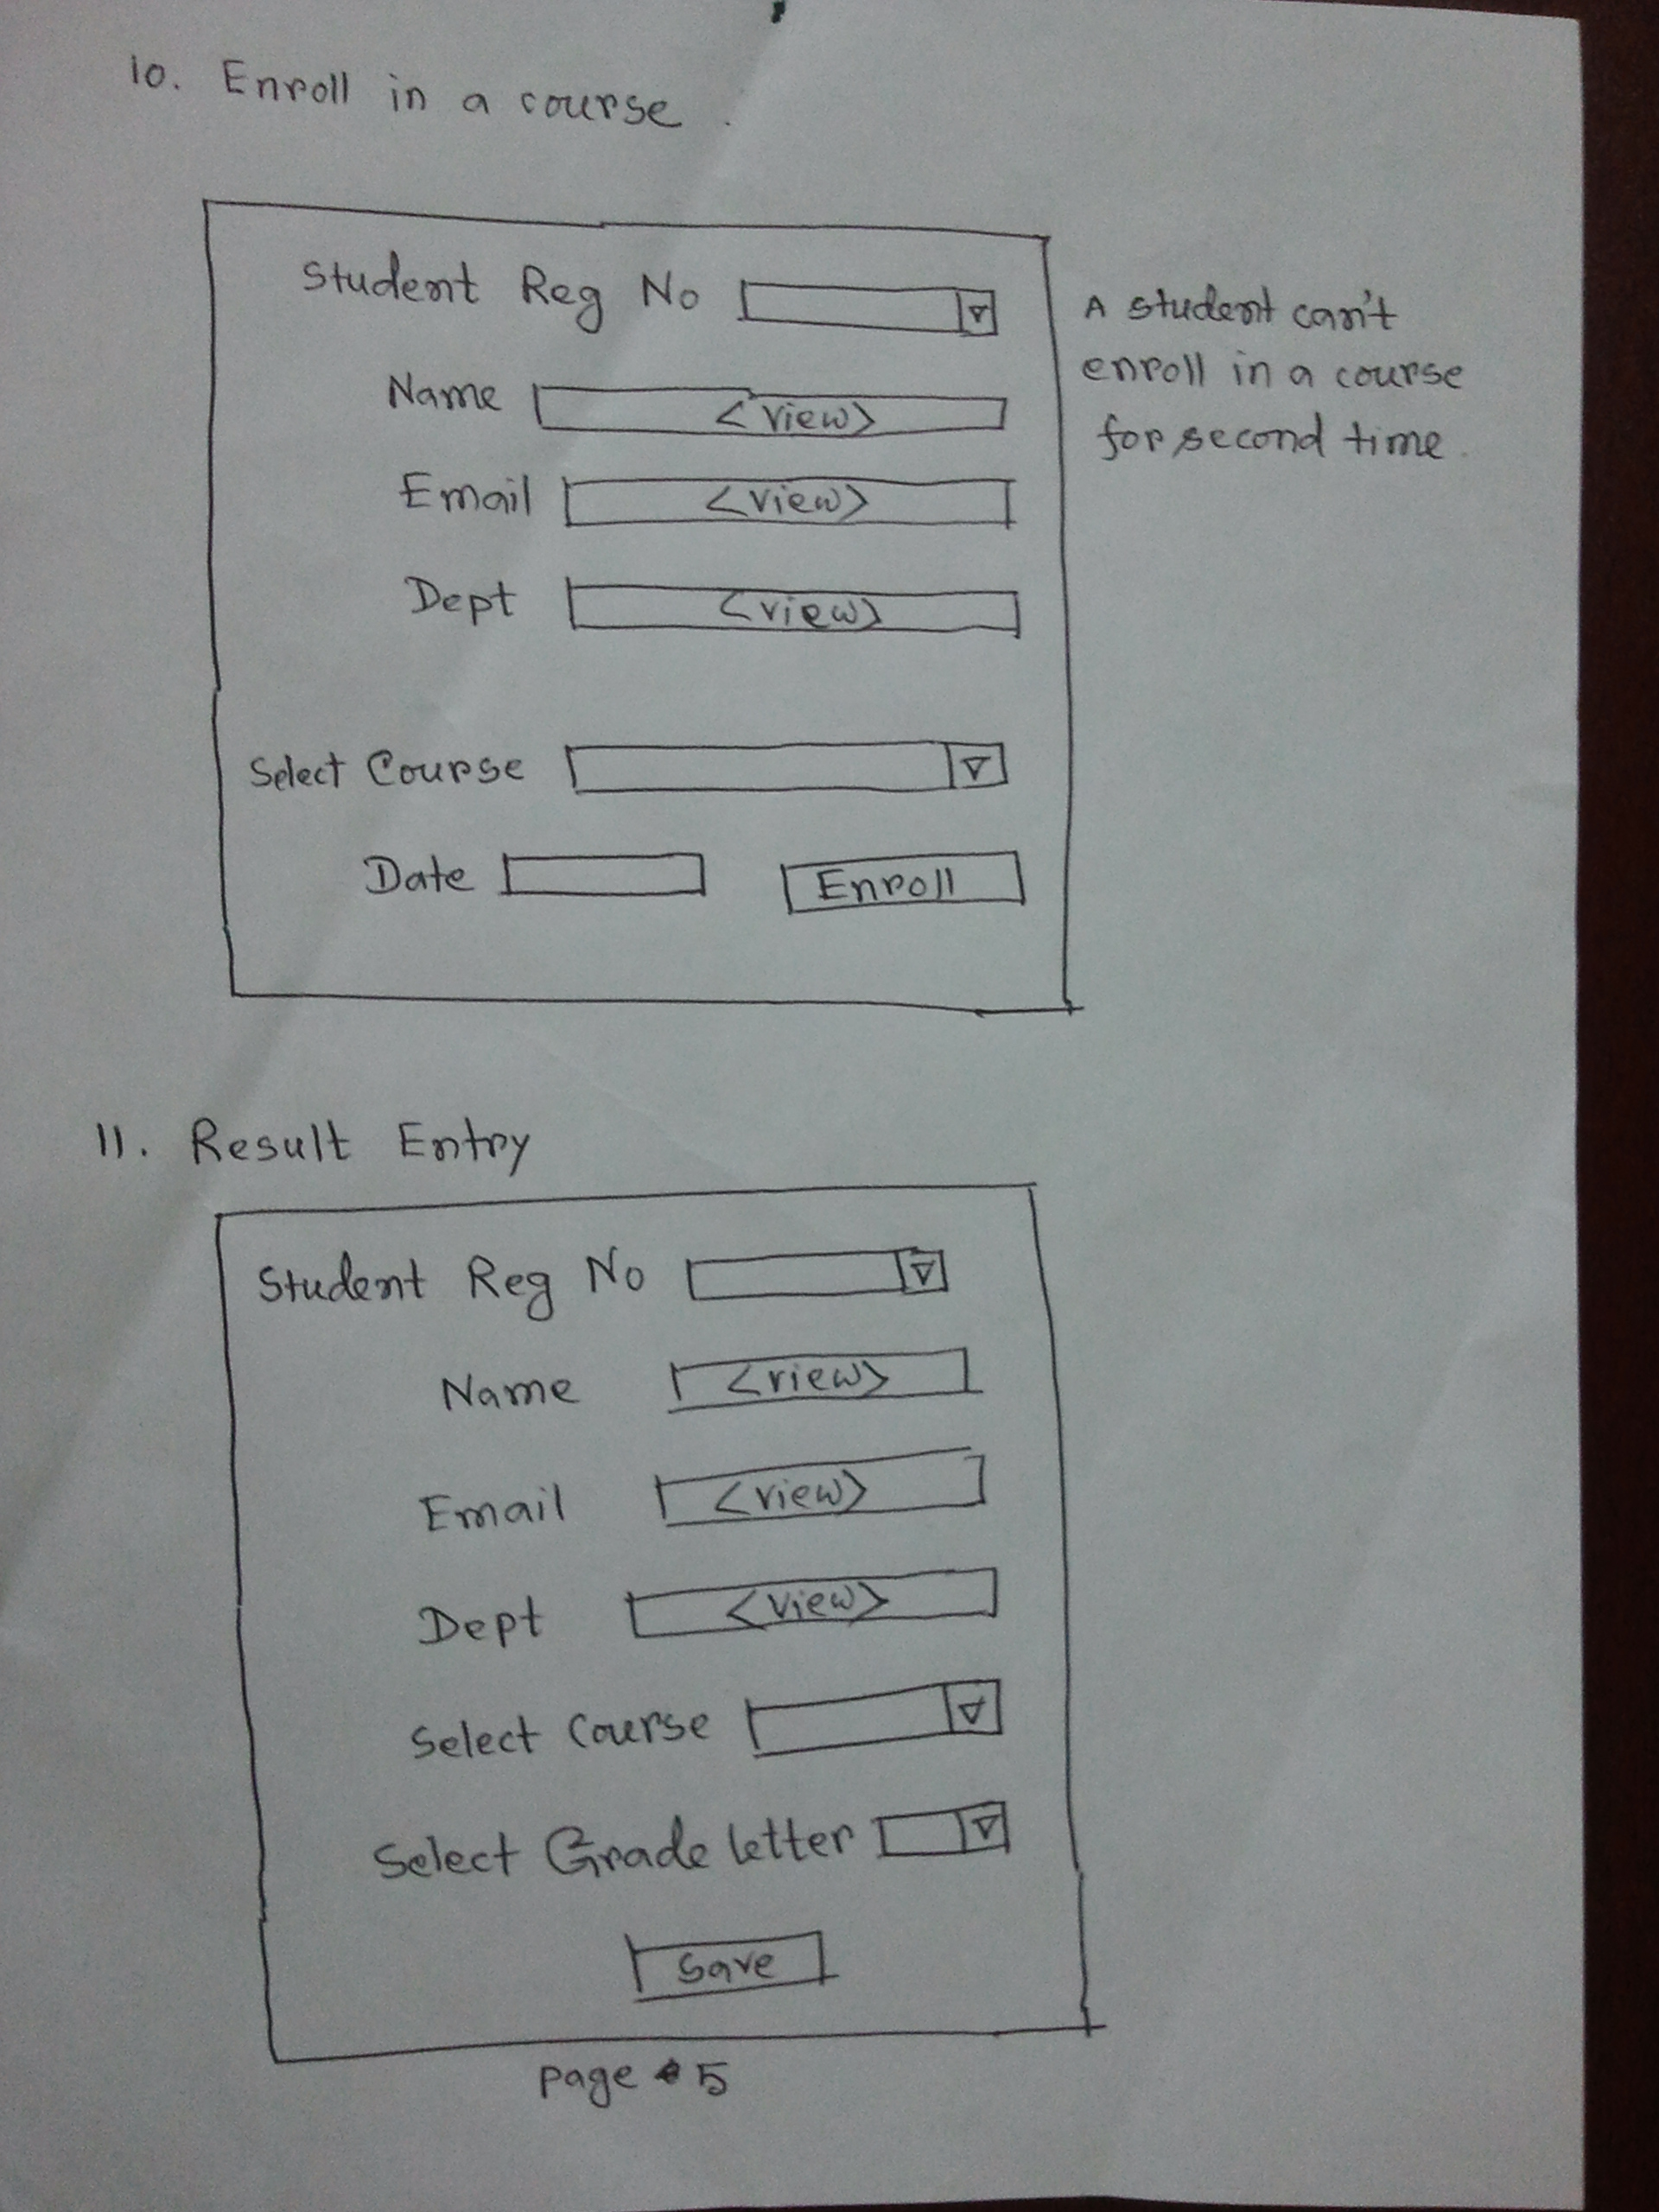 10. Enroll in a course.
Student Reg No
Name <view>
Email <view>
Dept <view>
Select Course
Date Enroll
A student can't
enroll in a course
for second time.
11. Result Entry
Student Reg No
Name <view>
Email <view>
Dept <view>
Select Course
Select Grade letter
Save
page 5